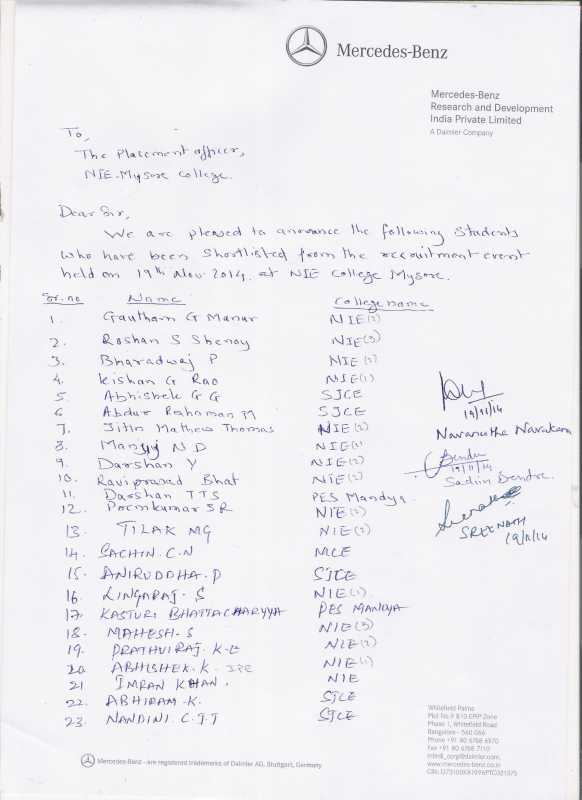 Mercedes-Benz
Mercedes-Benz
Research and Development
India Private Limited
A Daimler Company
To,
The Placement officer,
NIE-Mysore College.
Dear Sir,
We are pleased to announce the following Students
who have been shortlisted from the recruitment event
held on 19th Nov 2014 at NIE College Mysore.
Sr. no Name College name
1. Gautham G Manur NIE(2)
2. Roshan S Shenoy NIE(3)
3. Bharadwaj P NIE(2)
4. Kishan G Rao NIE(1)
5. Abhishek G G SJCE
6 Abdur Rahaman M SJCE
7. Jithin Mathew Thomas NIE(2)
8. N D NIE
9. Darshan Y NIE(2)
10. Raviprasad Bhat NIE(2)
11. Darshan TTS PES Mandya
12. Premkumar S R NIE(2)
13. TILAK MG NIE(2)
14. SACHIN. C.N MCE
15. ANIRUDDHA. P SJCE
16. LINGARAJ. S NIE(1)
17. KASTURI BHATTACHARYYA PES MANDYA
18. MAHESH. S NIE(3)
19. PRATHVIRAJ. NIE(2)
20 ABHISHEK. K. NIE(1)
21 IMRAN KHAN. NIE
22. ABHIRAM. K. SJCE
23. NANDINI. SJCE
19/11/14
19/11/14
SREENATH
19/11/14
Whitefield Palms
Plot No.9 & 10 EPIP Zone
Phase 1, Whitefield Road
Bangalore - 560 066
Phone +91 80 6768 6970
Fax +91 80 6768 7110
www.mercedes-benz.co.in
Mercedes-Benz - are registered trademarks of Daimler AG, Stuttgart, Germany